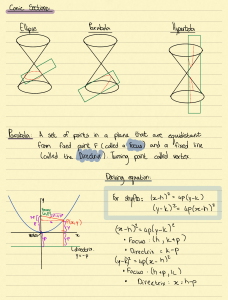 Conic Sections
Ellipse Parabola Hyperbola
Parabola: A set of points in a plane that are equidistant
from fixed point F (called a focus) and a fixed line
(called the Directrix). Turning point called vertex.
Deriving equation:
For shifts: (x-h)² = 4p(y-k)
(y-k)² = 4p(x-h)
(x-h)² = 4p(y-k)
• Focus: (h, k+p)
• Directrix = k-p
(y-k)² = 4p(x-h)
• Focus: (h+p, k)
• Directrix: x = h-p
directrix
y = -p